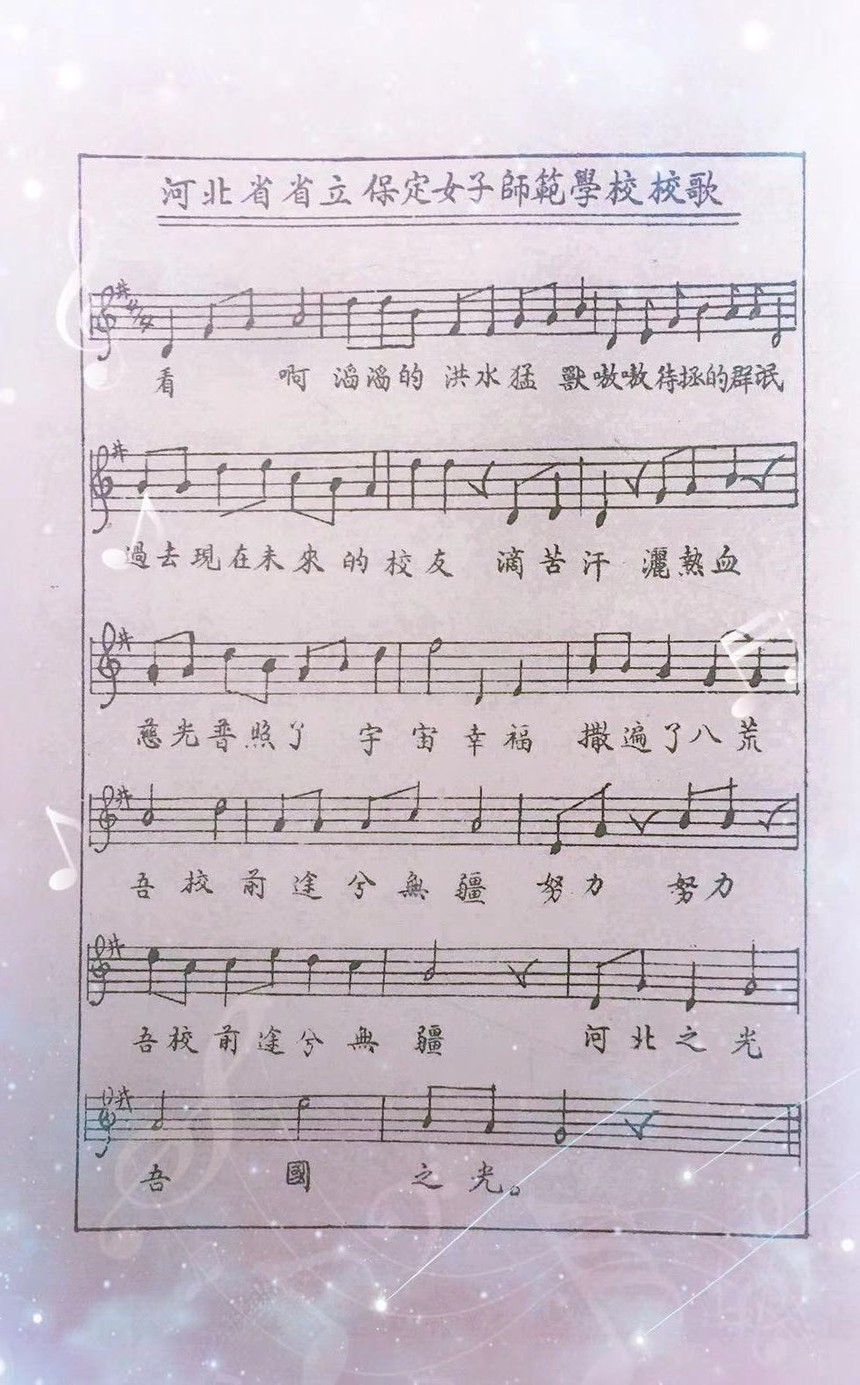 河北省省立保定女子師範學校校歌
4/4
看 啊 滔滔的 洪水猛 獸嗷嗷待拯的群氓
過去現在未來的校友 滴苦汗 灑熱血
慈光普照了 宇宙幸福 撒遍了八荒
吾校前途兮無疆 努力 努力
吾校前途兮無疆 河北之光
吾國之光。